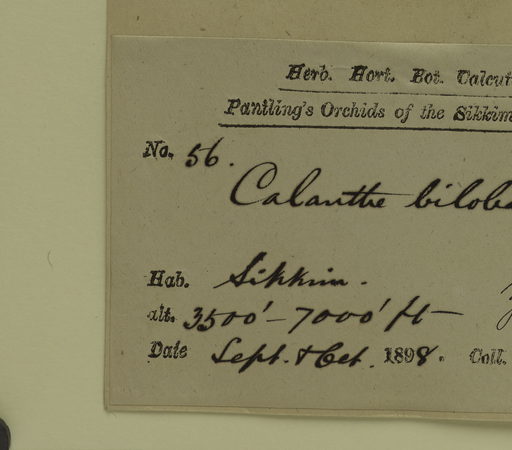 Herb. Hort. Bot. Calcut
Pantling's Orchids of the Sikkim
No. 56.
Calanthe biloba
Hab. Sikkim.
alt. 3500' - 7000' ft
Date Sept. & Oct. 1898. Coll.